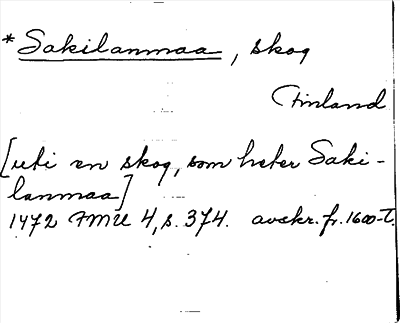 *Sakilanmaa, skog
Finland
[uti en skog, som heter Saki-
lanmaa]
1472 FMU 4, s. 374. avskr. fr. 1600-t.